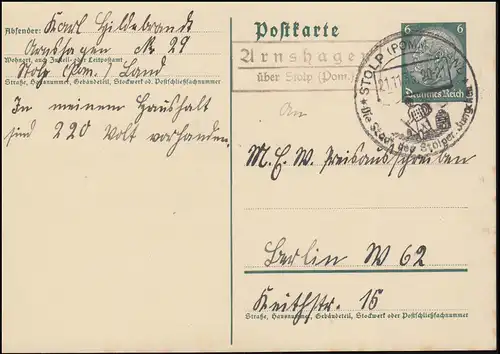 Absender: Karl Hildebrandt
Arnshagen Nr 29
Wohnort, auch Zustell- oder Leitpostamt
Stolp (Pom.) Land
Straße, Hausnummer, Gebäudeteil, Stockwerk od. Postschließfachnummer
In meinem Haushalt
sind 220 Volt vorhanden.
Postkarte
6 6
Deutsches Reich
Arnshagen
über Stolp (Pom.)
STOLP (POMMERN)
21.11
Die Stadt des Stolper Jungchen
An
M.E.W. Preisausschreiben
Berlin W 62
Keithstr. 15
Straße, Hausnummer, Gebäudeteil, Stockwerk oder Postschließfachnummer